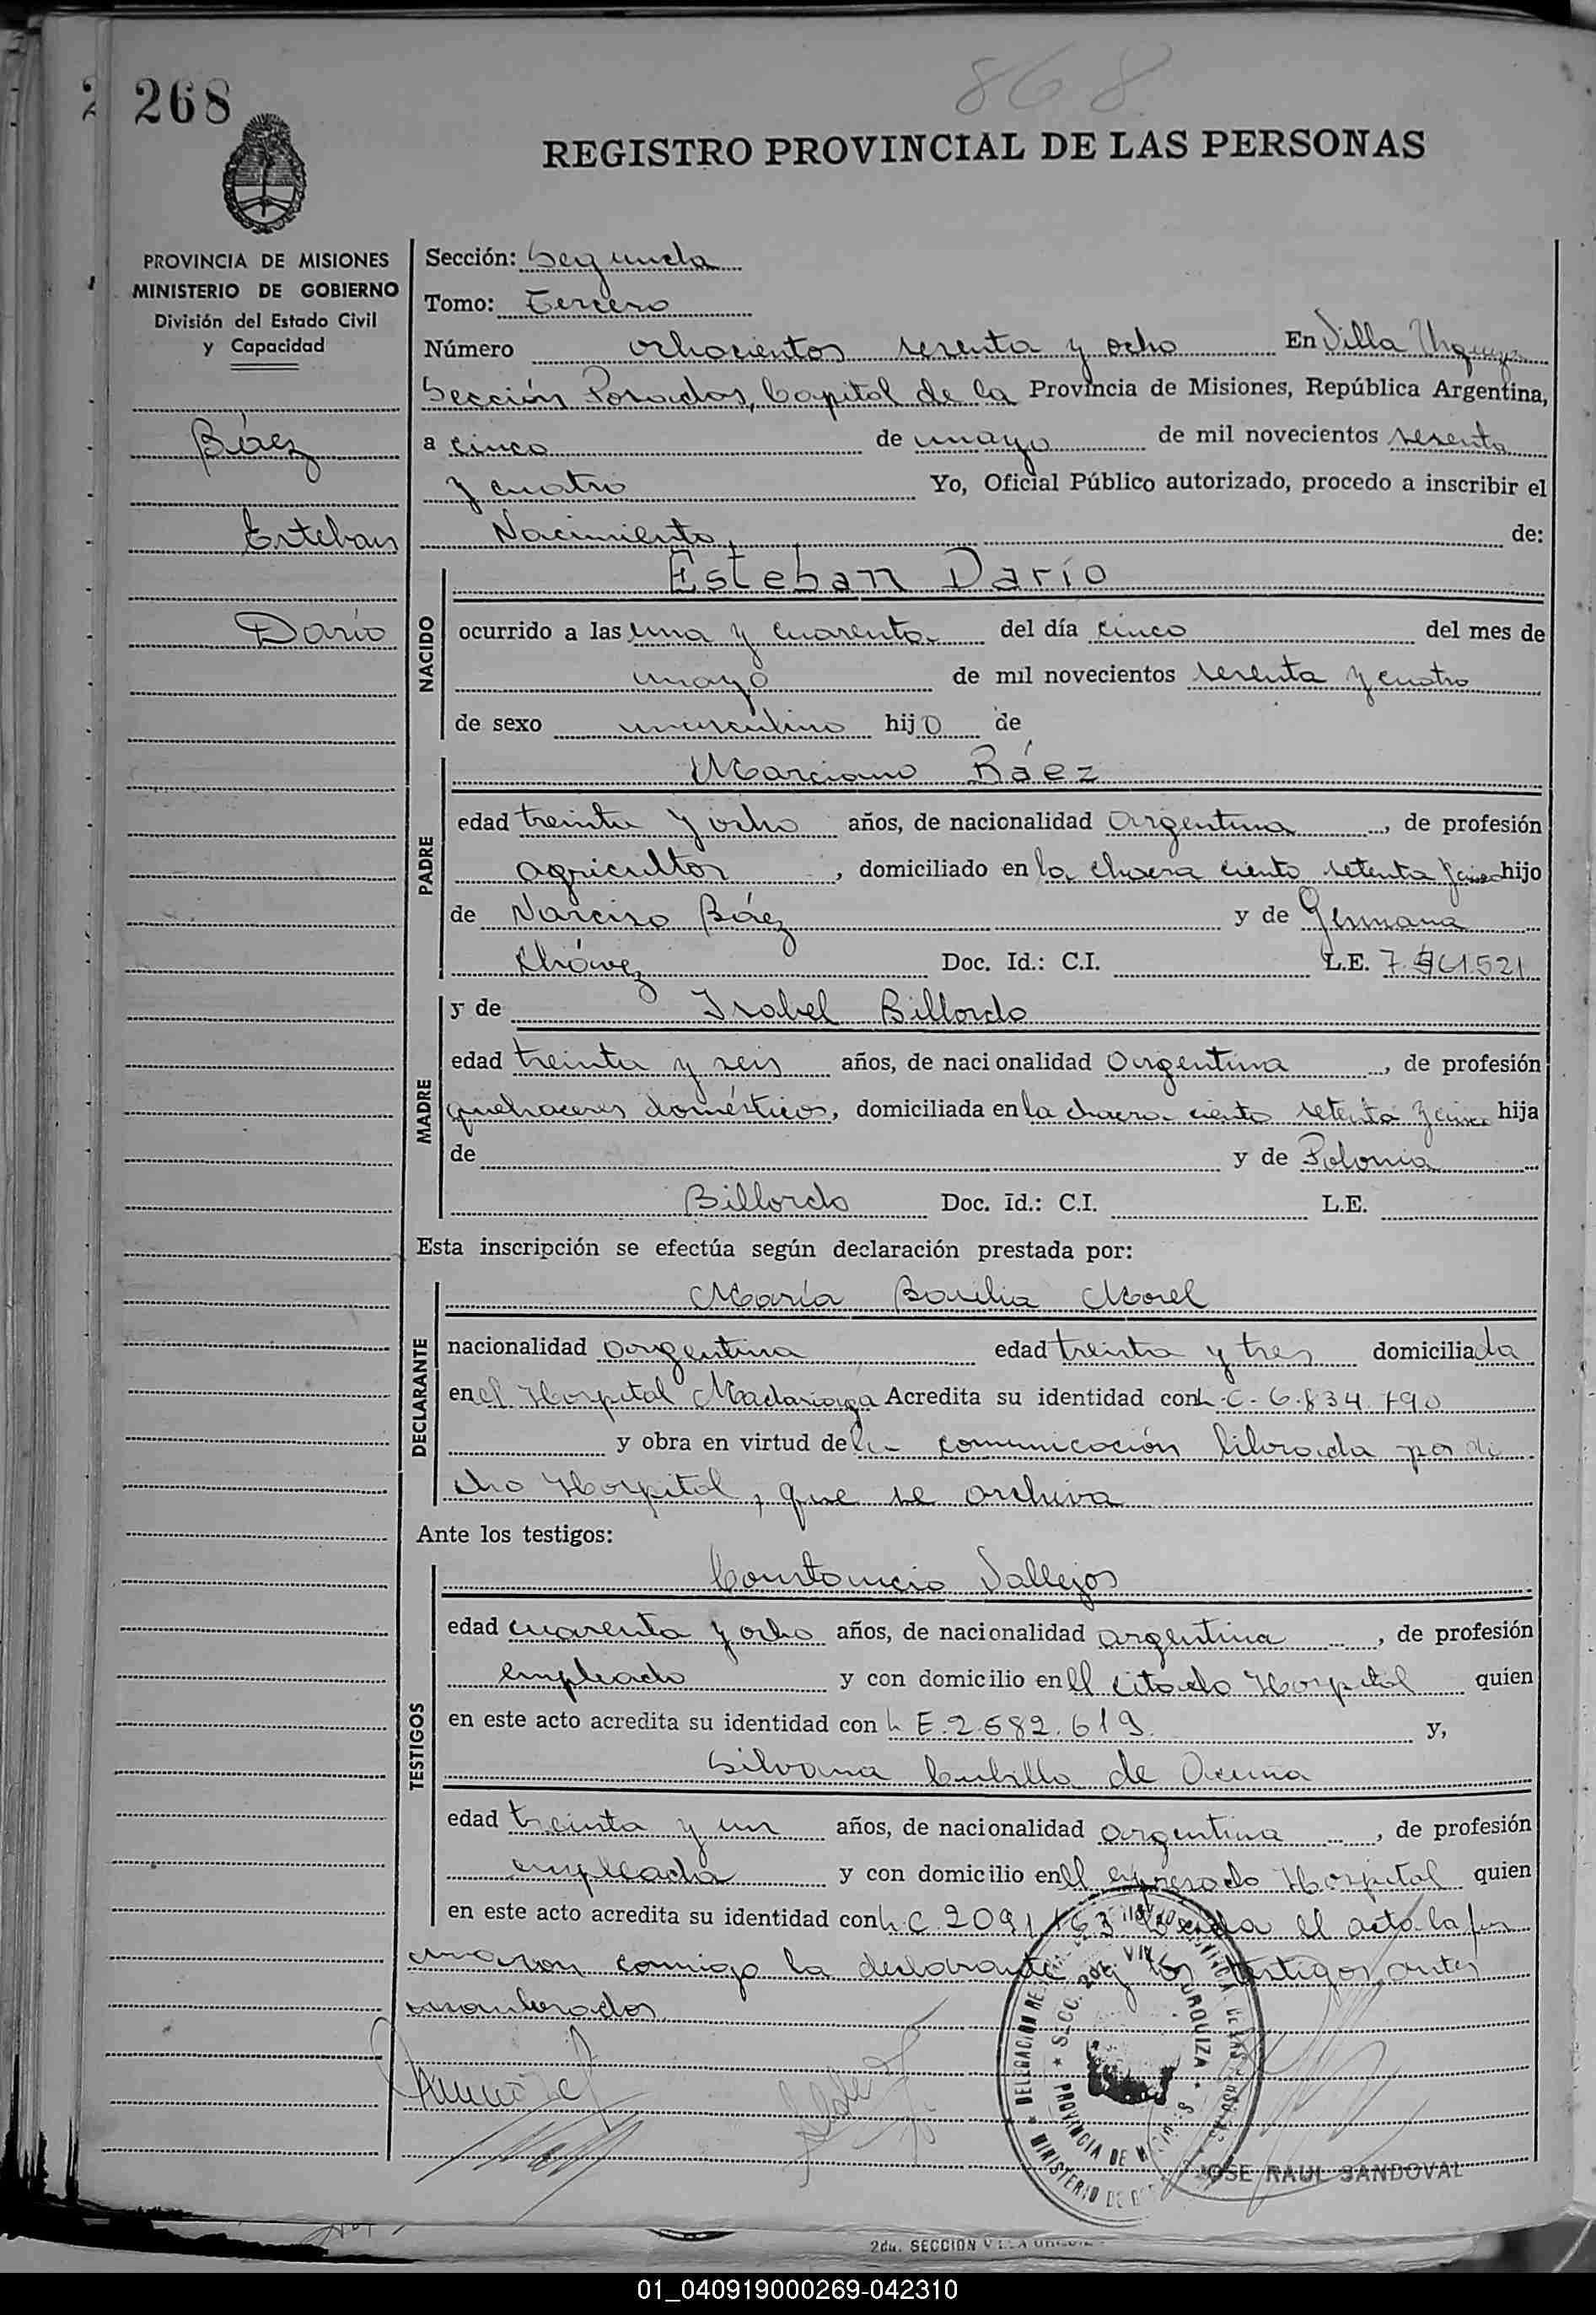 868
268
REGISTRO PROVINCIAL DE LAS PERSONAS
PROVINCIA DE MISIONES
MINISTERIO DE GOBIERNO
División del Estado Civil
y Capacidad
Báez
Esteban
Darío
Sección: Segunda
Tomo: Tercero
Número ochocientos sesenta y ocho En Villa Urquiza
Sección Posadas, Capital de la Provincia de Misiones, República Argentina,
a cinco de mayo de mil novecientos sesenta
y cuatro Yo, Oficial Público autorizado, procedo a inscribir el
Nacimiento de:
NACIDO
Esteban Darío
ocurrido a las una y cuarenta del día cinco del mes de
mayo de mil novecientos sesenta y cuatro
de sexo masculino hijo de
PADRE
Marciano Báez
edad treinta y ocho años, de nacionalidad argentina, de profesión
agricultor, domiciliado en la chacra ciento setenta y cinco hijo
de Narciso Báez y de Germana
Chávez Doc. Id.: C.I. L.E. 7. 521
MADRE
y de Isabel Billordo
edad treinta y seis años, de nacionalidad argentina, de profesión
quehaceres domésticos, domiciliada en la chacra ciento setenta y cinco hija
de y de Polonia
Billordo Doc. Id.: C.I. L.E.
Esta inscripción se efectúa según declaración prestada por:
DECLARANTE
María Morel
nacionalidad argentina edad treinta y tres domiciliada
en el Hospital Madariaga Acredita su identidad con L.C. 6.834.790
y obra en virtud de la comunicación librada por di
cho Hospital, que se archiva
Ante los testigos:
TESTIGOS
Constancio Vallejos
edad cuarenta y ocho años, de nacionalidad argentina, de profesión
empleado y con domicilio en el citado Hospital quien
en este acto acredita su identidad con L.E. 2.682.619 y,
Silvana Cubilla de Acuña
edad treinta y un años, de nacionalidad argentina, de profesión
empleada y con domicilio en el expresado Hospital quien
en este acto acredita su identidad con L.C. 2091163 Leída el acta la fir
maron conmigo la declarante y los testigos antes
nombrados
SECC. 2da. VILLA URQUIZA
PROVINCIA DE MISIONES
MINISTERIO DE
JOSE RAUL SANDOVAL
2da. SECCION VILLA URQUIZA
01_040919000269-042310